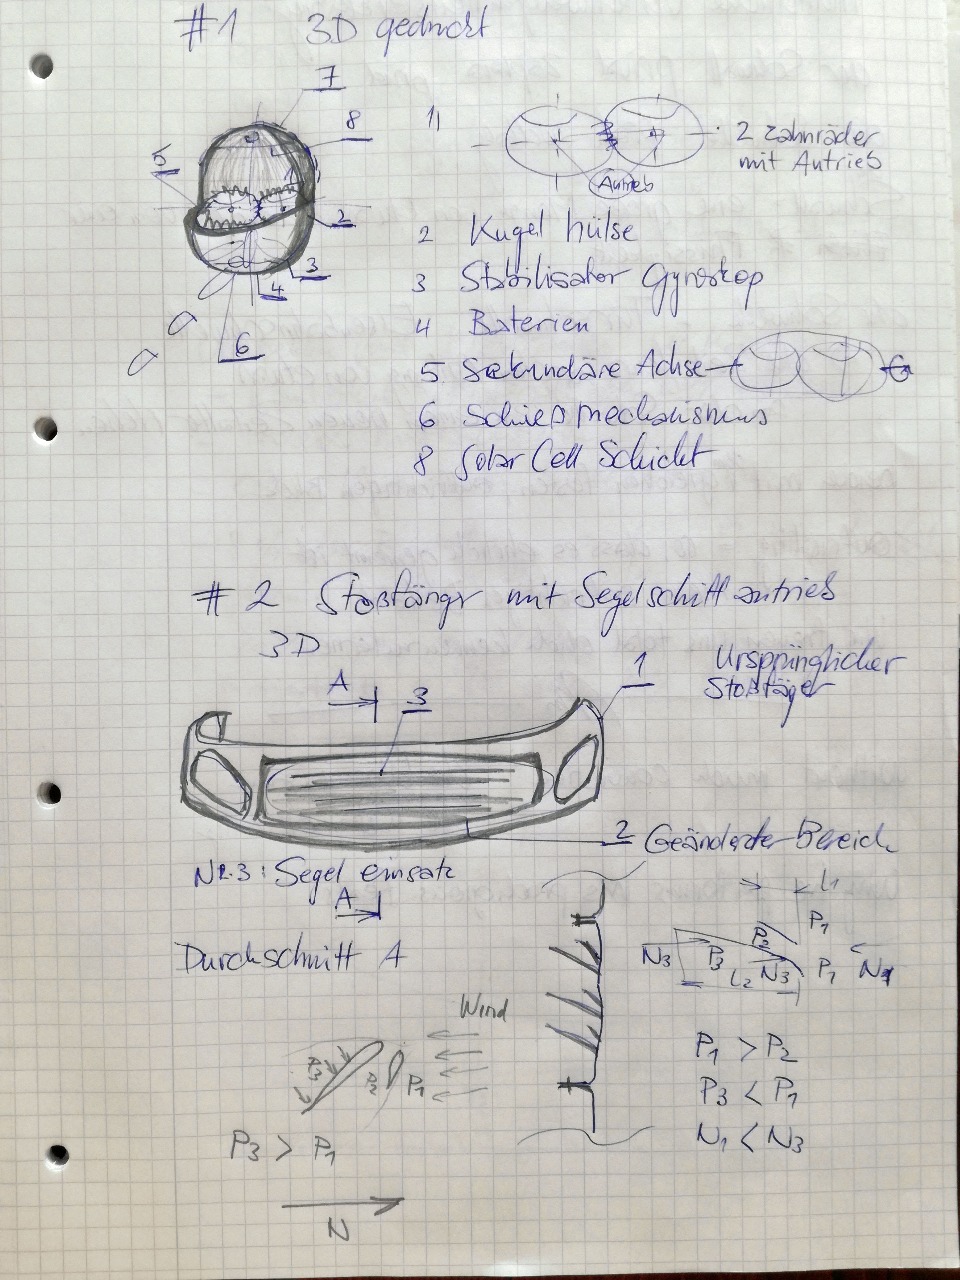 #1 3D gedruckt
7
8
5
2
3
4
6
1,
Antrieb
2 Zahnräder
mit Antrieb
2 Kugel hülse
3 Stabilisator Gyroskop
4 Baterien
5 Sekundäre Achse
6 Schieß mechanismus
8 Solar Cell Schicht
#2 Stoßfänger mit Segelschiff antrieb
3D
A
3
1 Ursprünglicher
Stoßfäger
2 Geänderter Bereich
Nr.3: Segel einsatz
A
Durchschnitt A
Wind
P3
P2
P1
P3 > P1
N
L1
P1
P2
N3
P3
L2
N3
P1
N1
P1 > P2
P3 < P1
N1 < N3